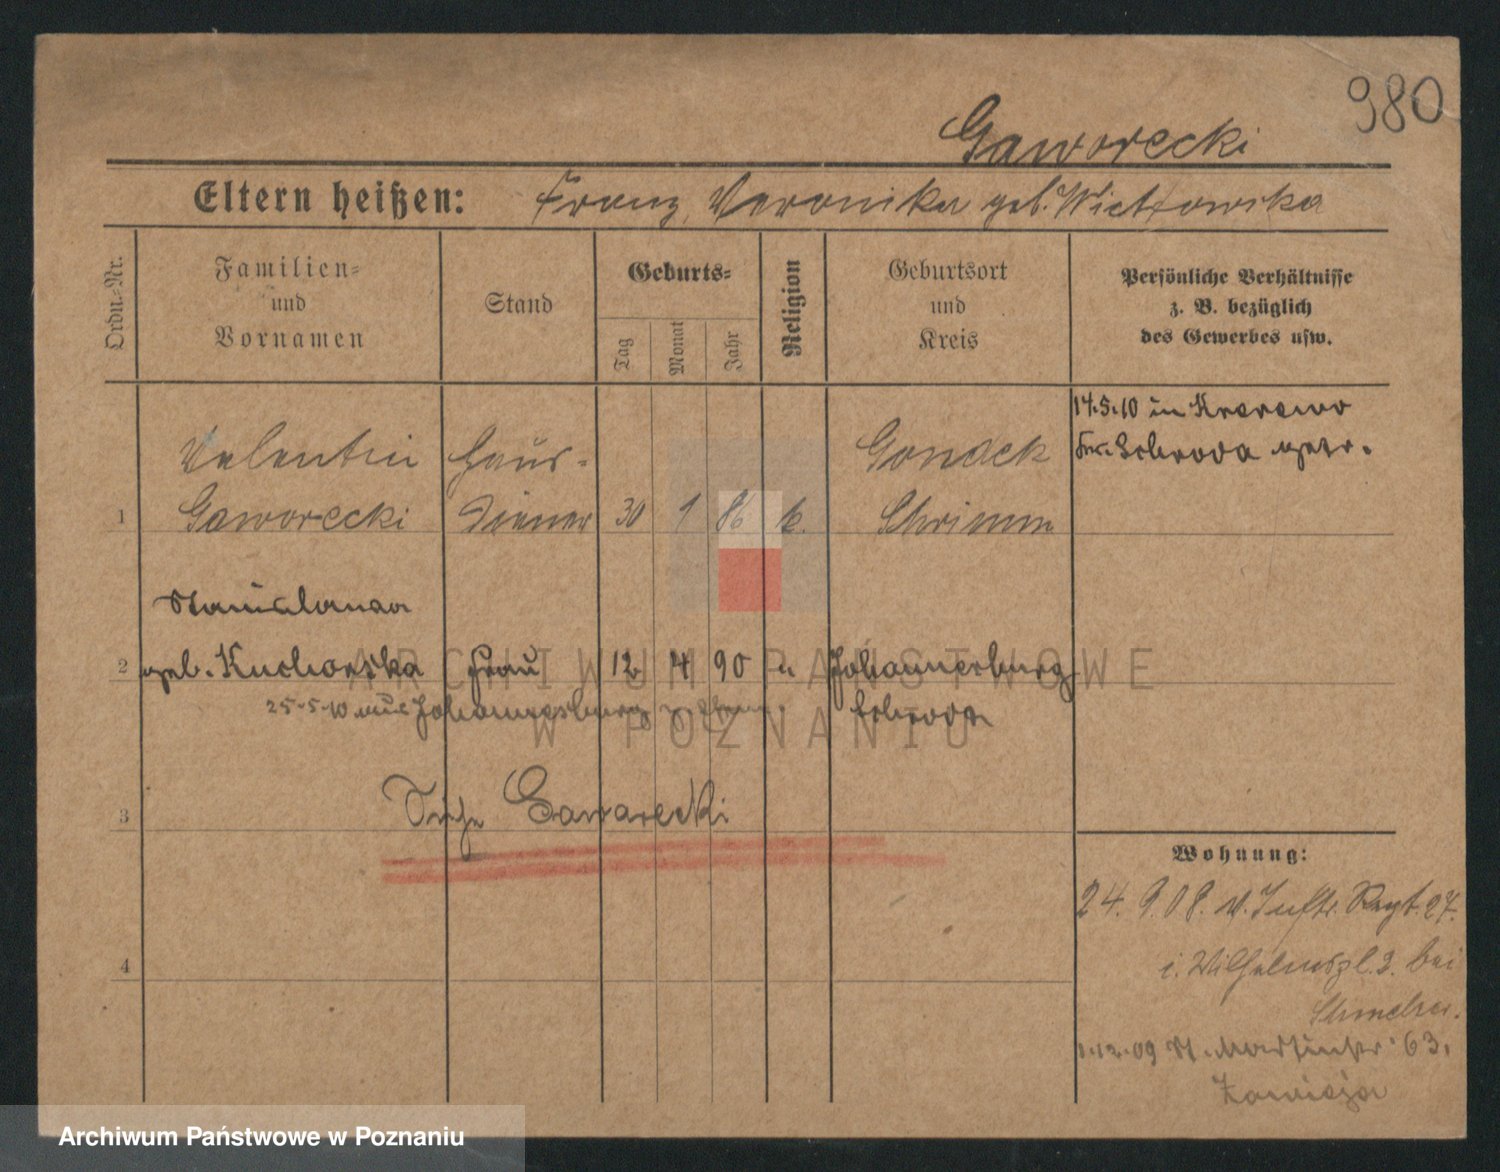 980
Gaworecki
Eltern heißen: Franz, Veronika geb. Wietrowska
Ordn.-Nr.
Familien-
und
Vornamen
Stand
Geburts-
Tag
Monat
Jahr
Religion
Geburtsort
und
Kreis
Persönliche Verhältnisse
z. B. bezüglich
des Gewerbes usw.
14.5.10 in Krerowo
Kr. Schroda getr.
Valentin Haus- Gondek
1 Gaworecki diener 30 1 86 k. Schrimm
Stanislawa
2 geb. Kucharska Frau 12 4 90 " Johannesburg
25.5.10 aus Johannesburg Schroda
3 Siehe Gawarecki
4
Wohnung:
24. 9. 08. v. Inftr. Regt. 27.
i. Wilhelmspl. 3. bei
1.12.09 St. Martinstr. 63.
ARCHIWUM PAŃSTWOWE
W POZNANIU
Archiwum Państwowe w Poznaniu